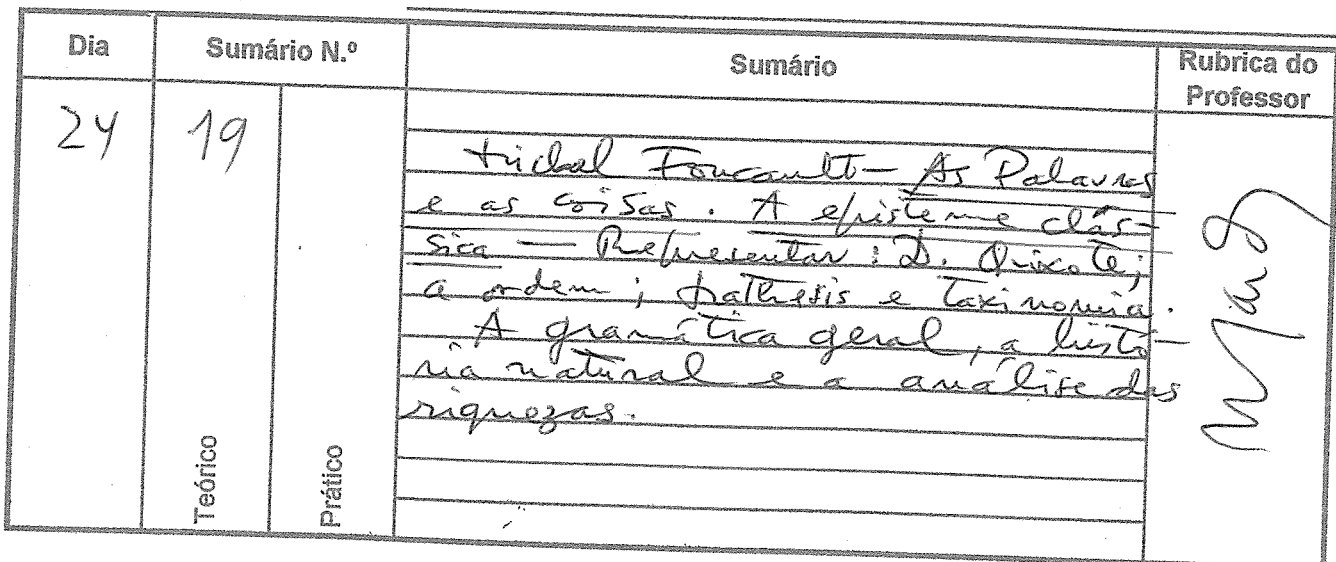 Dia
Sumário N.º
Sumário
Rubrica do
Professor
24
19
Michel Foucault — As Palavras
e as coisas. A episteme clás-
sica — Representar: D. Quixote;
a ordem; Mathesis e taxinomia.
A gramática geral, a histó-
ria natural e a análise das
riquezas.
Teórico
Prático